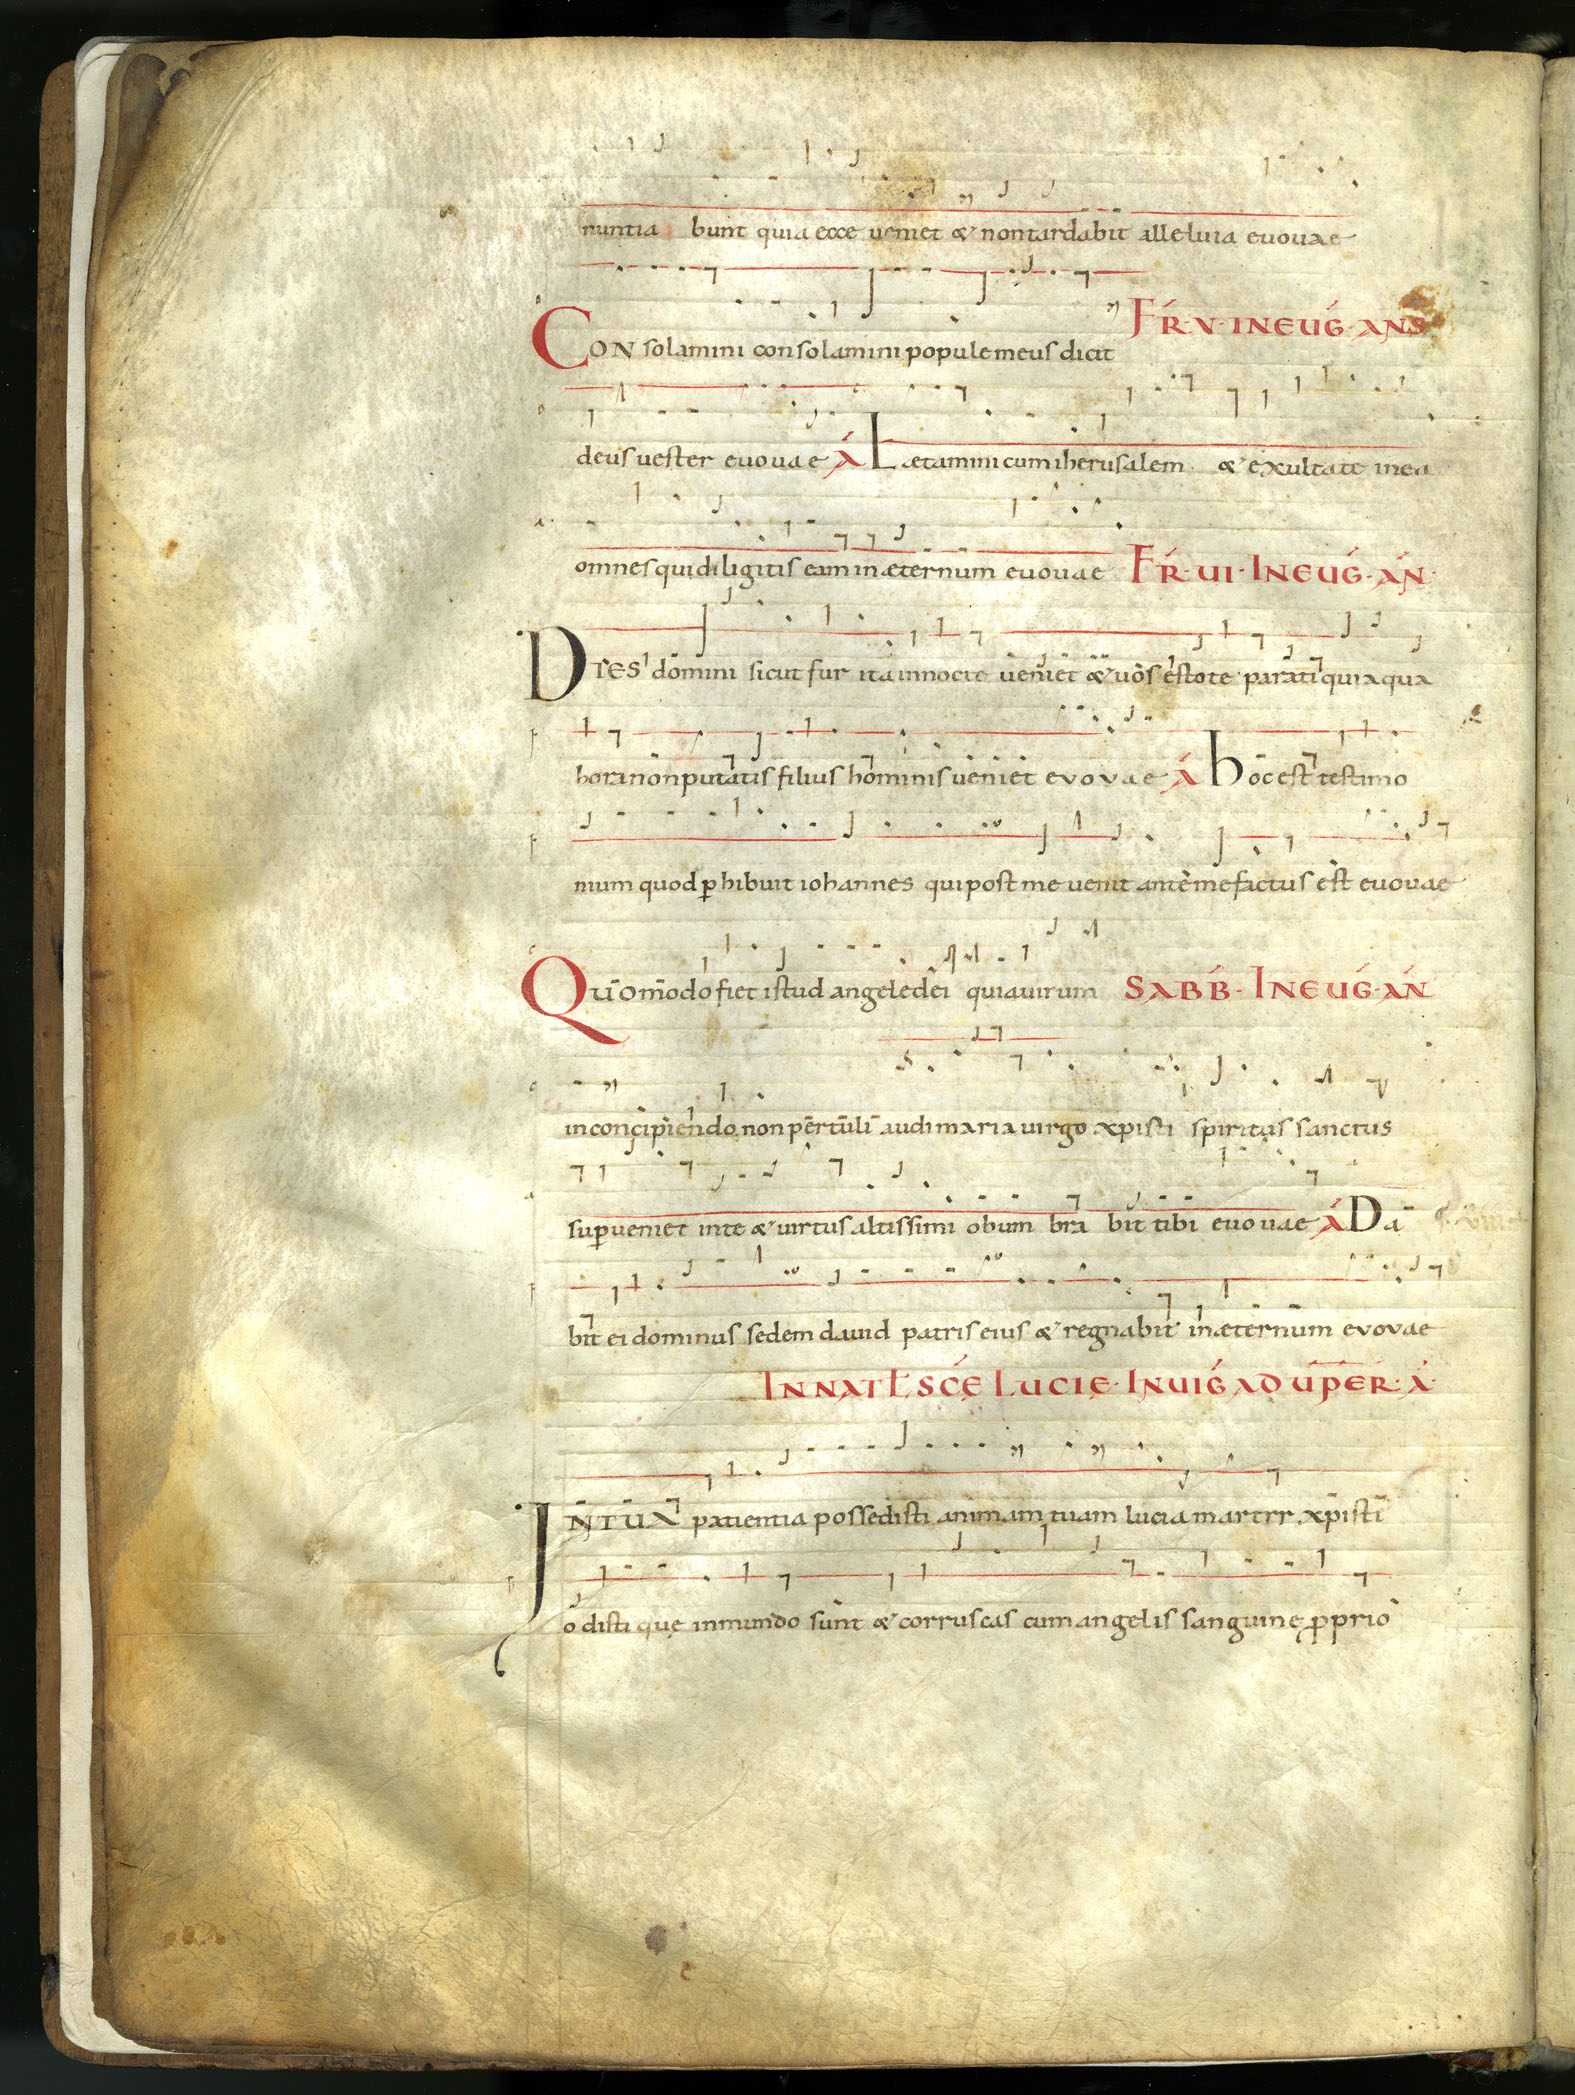 nuntia bunt quia ecce ueniet & non tardabit alleluia euouae
FR·V·IN EUG·ANS
CON solamini consolamini popule meus dicit
deus uester euouae A Lætamini cum iherusalem & exultate in ea
omnes qui diligitis eam in æternum euouae FR·UI·IN EUG·AN·
DIES domini sicut fur ita in nocte ueniet & uos estote parati quia qua
hora non putatis filius hominis ueniet evovae A hoc est testimo
nium quod phibuit iohannes qui post me uenit ante me factus est euouae
Quomodo fiet istud angele dei quia uirum SABB·IN EUG·AN
in concipiendo non pertuli audi maria uirgo xpisti spiritus sanctus
supueniet in te & uirtus altissimi obum bra bit tibi euouae A Da
bit ei dominus sedem dauid patris eius & regnabit in æternum evovae
IN NAT SCE LUCIE·IN UIG AD UPER·A·
IN TUA patientia possedisti animam tuam lucia martyr xpisti
odisti que in mundo sunt & corruscas cum angelis sanguine pprio